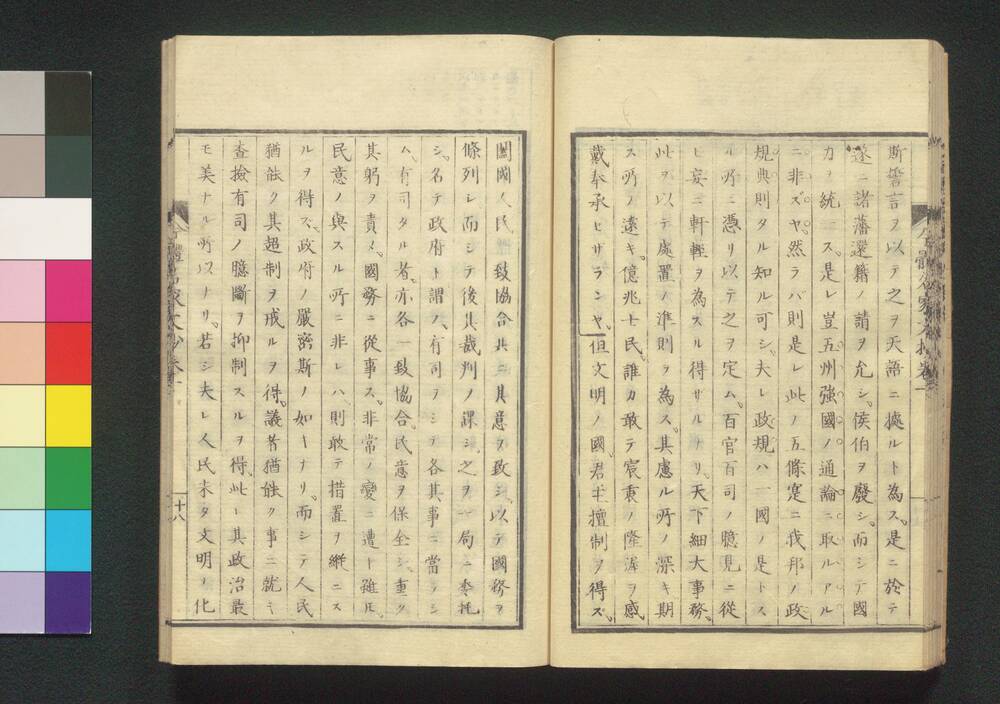 斯誓言ヲ以テ之ヲ天語ニ據ルト為ス。是ニ於テ
遂ニ諸藩還籍ノ請ヲ允シ。侯伯ヲ廢シ。而シテ國
力ヲ統一ス。是レ豈五州強國ノ通論ニ取ルアル
ニ非ズヤ。然ラバ則是レ此ノ五條寔ニ我邦ノ政
規典則タル知ル可シ。夫レ政規ハ一國ノ是トス
ル所ニ憑リ以テ之ヲ定ム。百官百司ノ臆見ニ從
ヒ妄ニ軒輊ヲ為スヲ得サルナリ。天下細大事務。
此ヲ以テ處置ノ準則ヲ為ス。其慮ル所ノ深キ期
ス所ノ遠キ。億兆士民。誰カ敢テ宸衷ノ隆渥ヲ感
戴奉承セサランヤ。但文明ノ國。君主擅制ヲ得ズ。
闔國人民。一致協合共ニ其意ヲ致シ。以テ國務ヲ
條列シ。而シテ後其裁判ノ課シ。之ヲ一局ニ委托
シ。名テ政府ト謂フ。有司ヲシテ各其事ニ當ラシ
ム。有司タル者。亦各一致協合。民意ヲ保全シ。重ク
其躬ヲ責メ。國務ニ從事ス。非常ノ變ニ遭ト雖𪜈。
民意ノ與スル所ニ非レハ則敢テ措置ヲ縱ニス
ルヲ得ズ。政府ノ嚴密斯ノ如キナリ。而シテ人民
猶能ク其超制ヲ戒ルヲ得。議者猶能ク事ニ就キ
査撿有司ノ臆斷ヲ抑制スルヲ得。此レ其政治最
モ美ナル所以ナリ。若シ夫レ人民未タ文明ノ化
十八